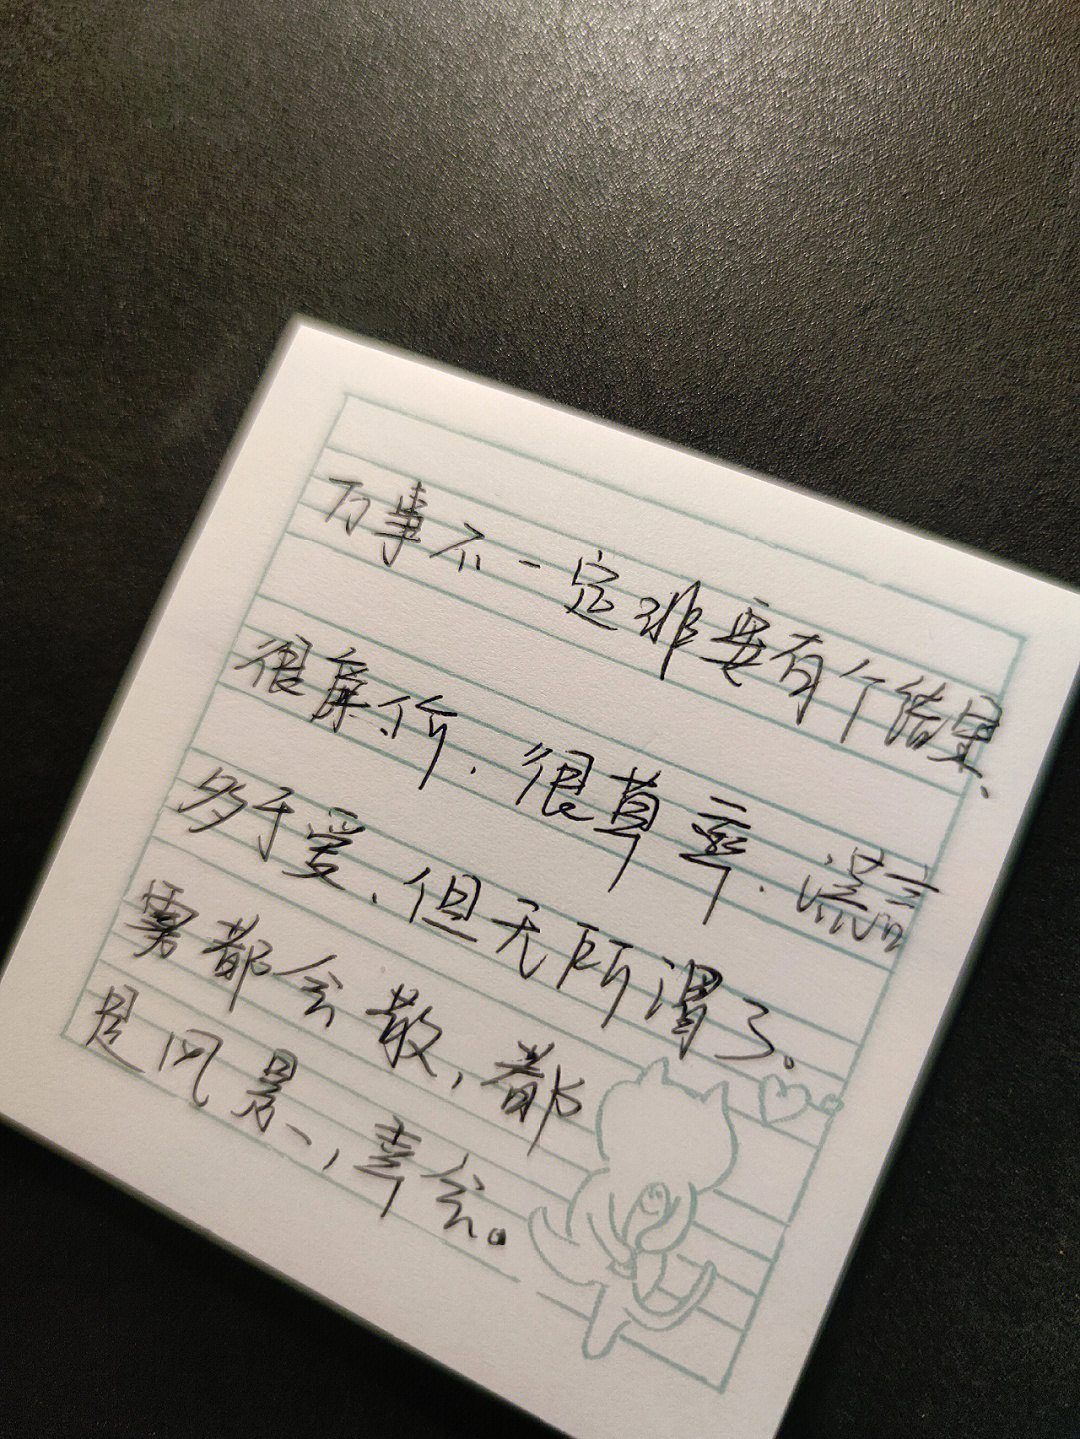 万事不一定非要有个结果、
很廉价.很草率.谎言
多于爱、但无所谓了。
雾都会散,都
是风景、,幸会。